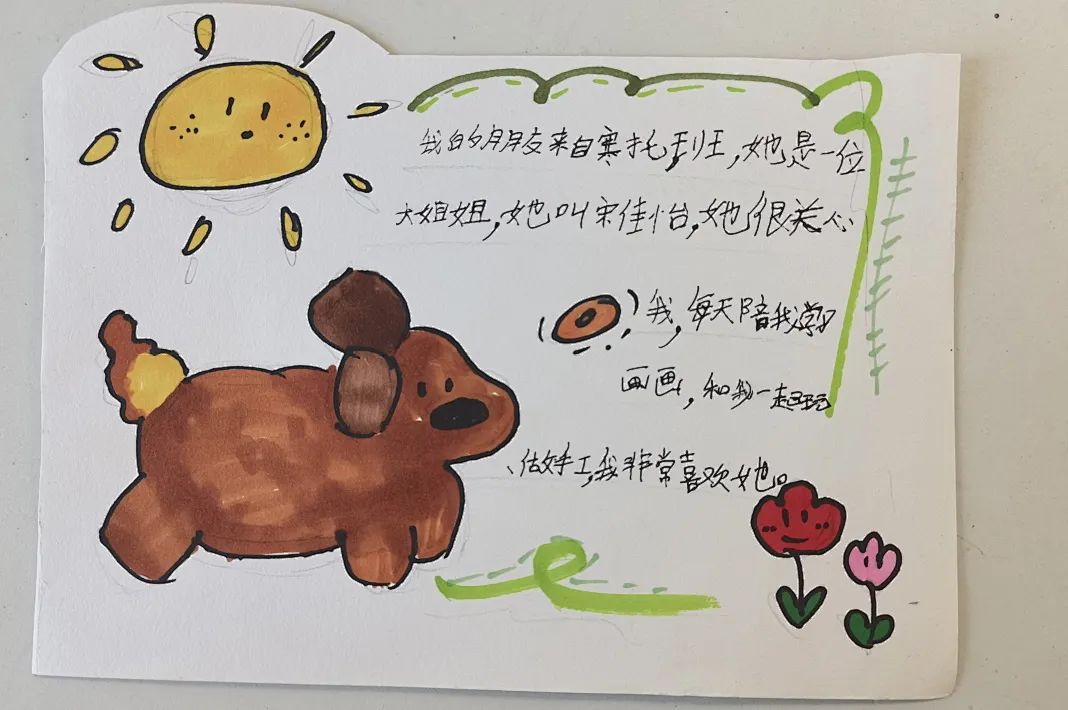 我的朋友来自寒托班,她是一位
大姐姐,她叫宋佳怡,她很关心
我,每天陪我学习
画画,和我一起玩
、做手工,我非常喜欢她。